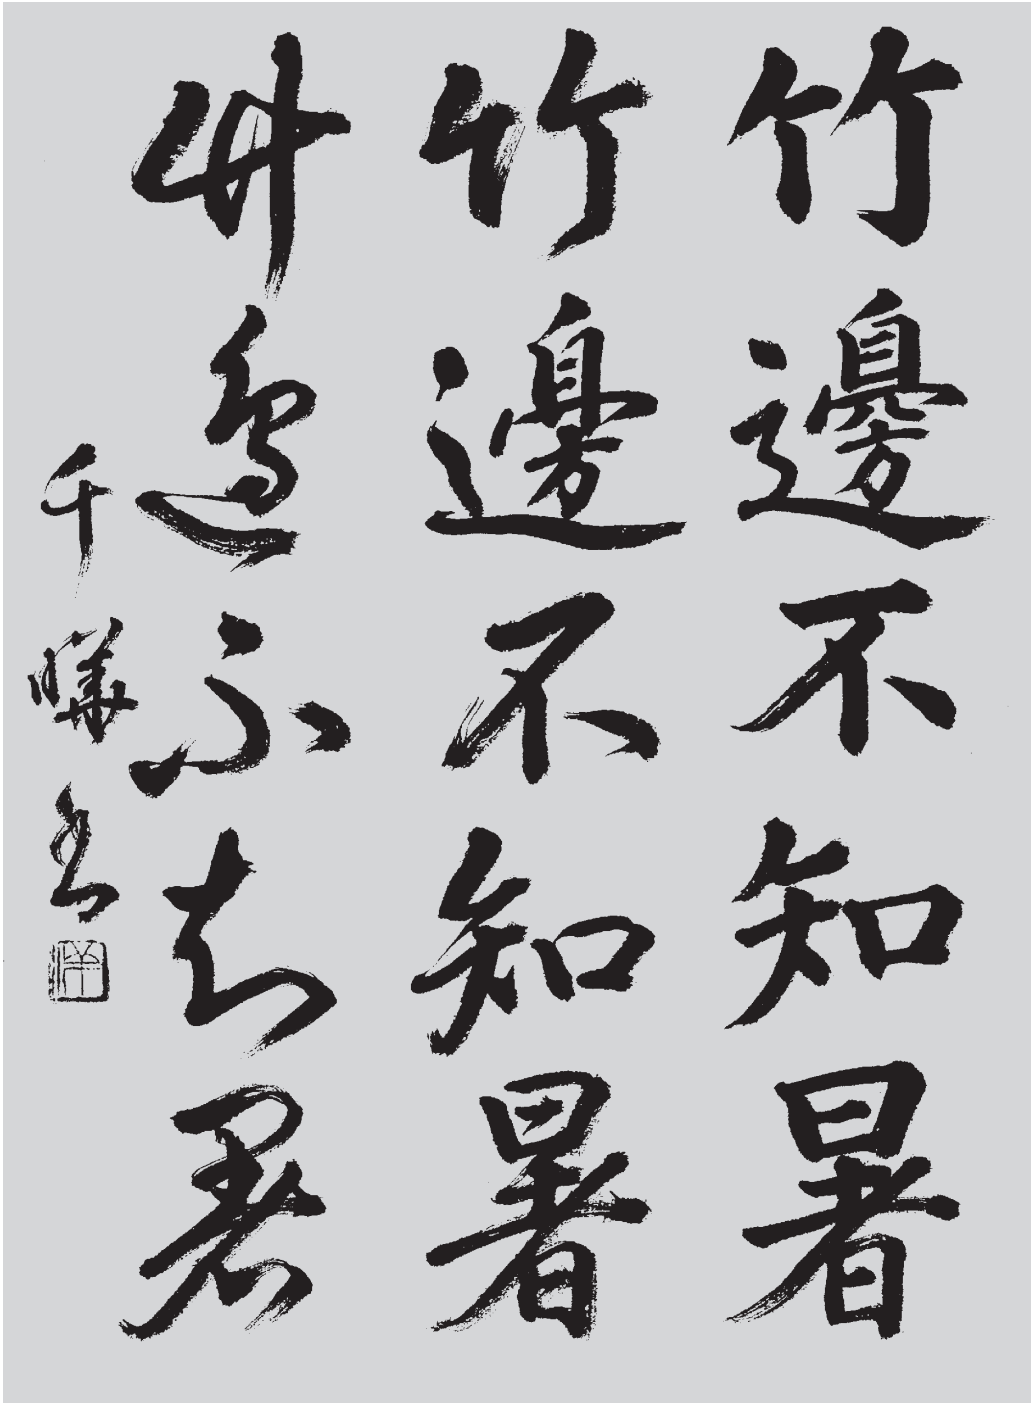 竹邊不知暑
竹邊不知暑
竹邊不知暑
千曄書